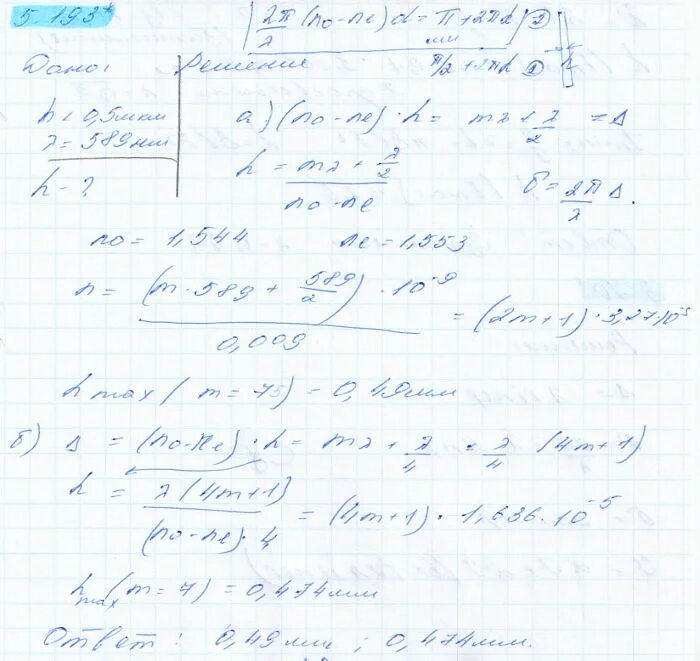 5.193*
2π/λ (no-ne)d = π+2πk 2)
π/2+2πk 1)
Дано:
Решение
h < 0,5мкм
λ = 589нм
h - ?
а) (no-ne)·h = mλ + λ/2 = Δ
h = (mλ + λ/2)/(no-ne)
δ = 2π/λ Δ.
no = 1,544
ne = 1,553
h = (m·589 + 589/2)·10^-9 / 0,009 = (2m+1)·3,27·10^-5
h max (m = 7) = 0,49мм
б) Δ = (no-ne)·h = mλ + λ/4 = λ/4 (4m+1)
h = λ(4m+1)/((no-ne)·4) = (4m+1)·1,636·10^-5
h max (m = 7) = 0,474мм
Ответ: 0,49мм; 0,474мм.